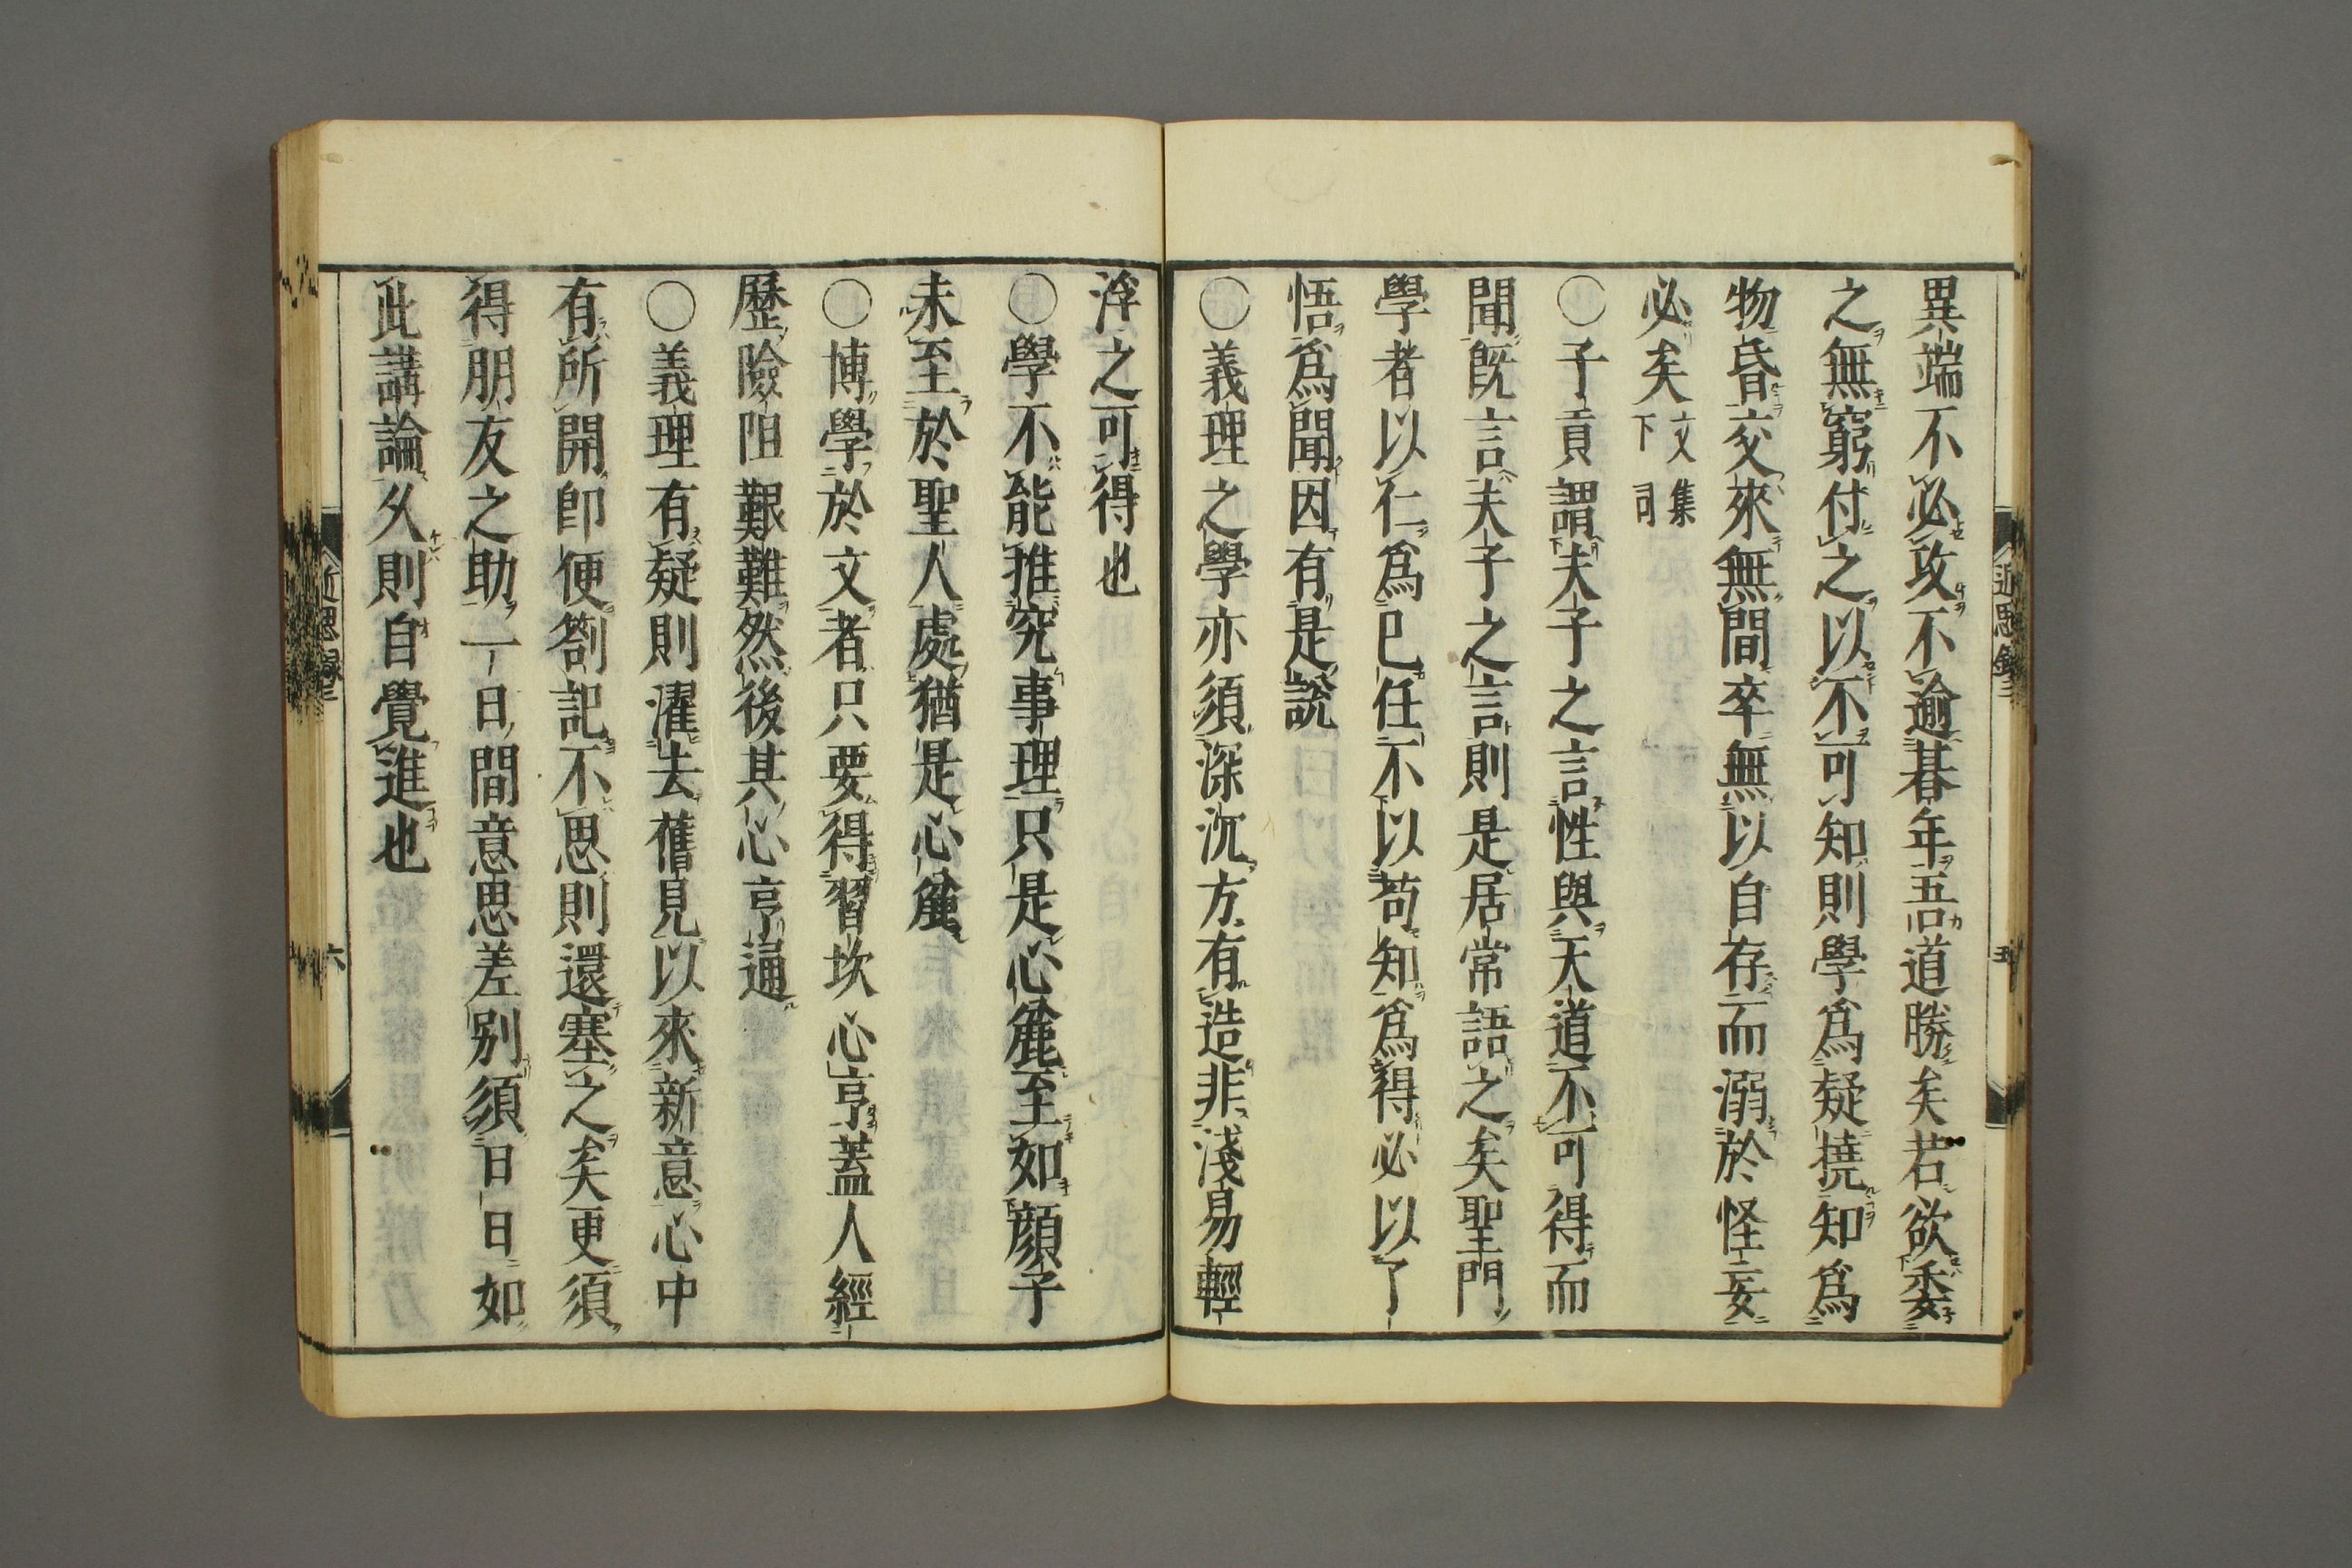 異端不必攻不逾朞年吾道勝矣若欲委
之無窮付之以不可知則學爲疑撓知爲
物昏交來無間卒無以自存而溺於怪妄
必矣文集下同
〇子貢謂夫子之言性與天道不可得而
聞既言夫子之言則是居常語之矣聖門
學者以仁爲已任不以苟知爲得必以了
悟爲聞因有是說
〇義理之學亦須深沉方有造非淺易輕
浮之可得也
〇學不能推究事理只是心麄至如顔子
未至於聖人處猶是心麄
〇博學於文者只要得習坎心亨蓋人經
歷險阻艱難然後其心亨通
〇義理有疑則濯去舊見以來新意心中
有所開即便劄記不思則還塞之矣更須
得朋友之助一日間意思差别須日日如
此講論久則自覺進也
近思錄三
五
近思錄三
六